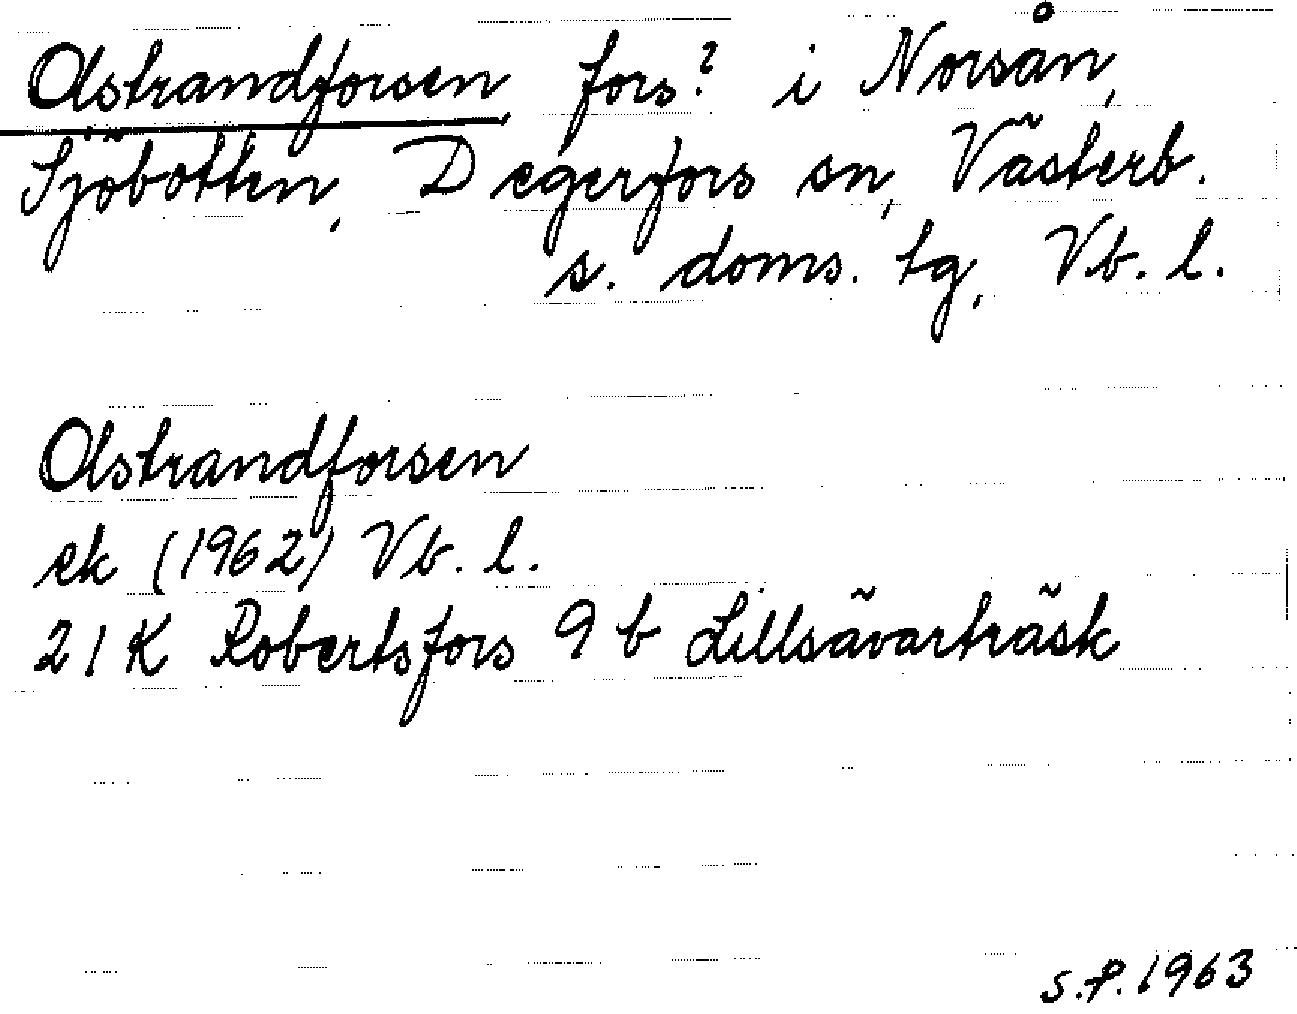 Olstrandforsen fors? i Norsån,
Sjöbotten, Degerfors sn, Västerb.
s. doms. tg, Vb. l.
Olstrandforsen
ek (1962) Vb. l.
21 K Robertsfors 9 b Lillsävarträsk
S.P. 1963